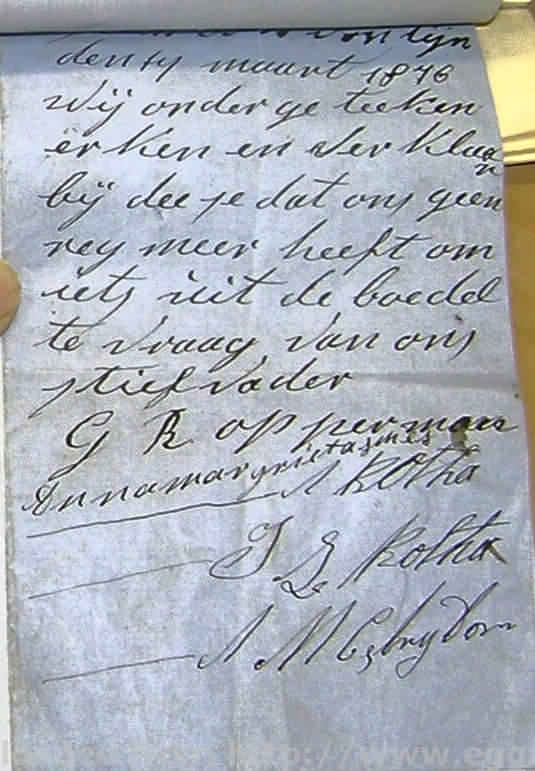 den 14 maart 1876
wij onder ge teeken
erken en ver klaar
bij dee se dat ons geen
reg meer heeft om
iets uit de boedel
te vraag van ons
stief vader
G R opperman
Annamargrietasmes
A Botha
J S Botha
A M
http://www.egg